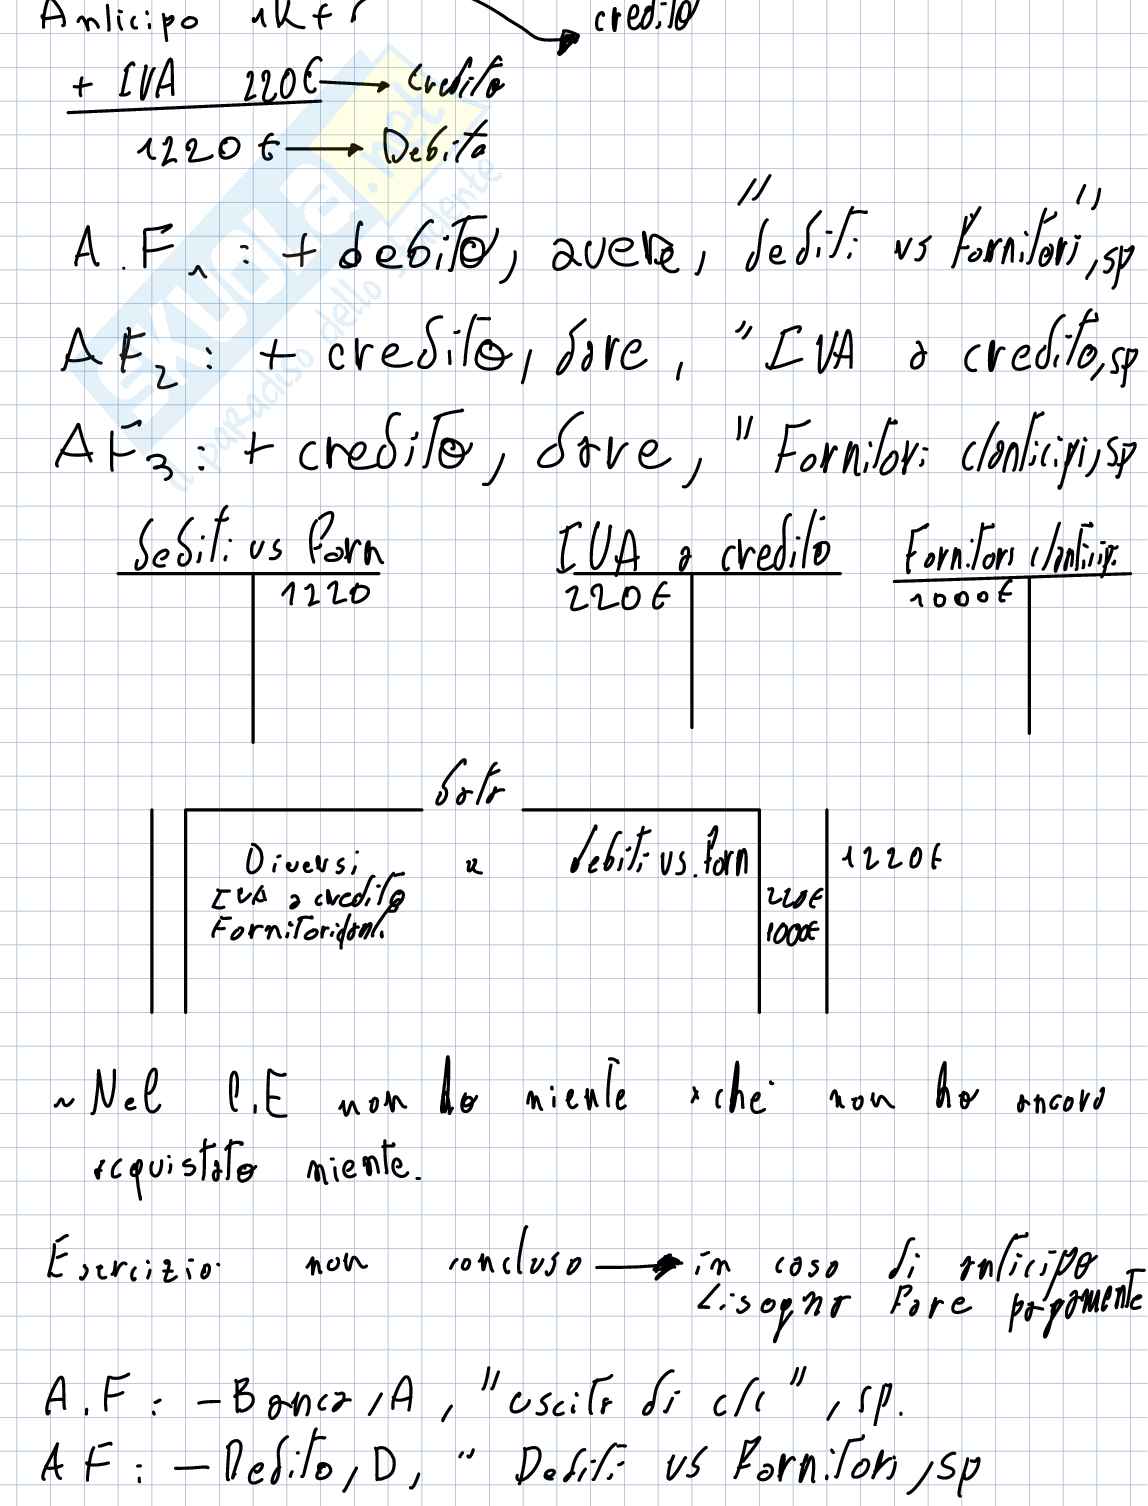 Anticipo 1k €
credito
+ IVA 220€ → Credito
1220 € → Debito
A.F₁ : + debito, avere, "debiti vs fornitori", sp
AF₂ : + credito, dare, "IVA a credito, sp
AF₃ : + credito, dare, "Fornitori c/anticipi, sp
debiti vs forn
IVA a credito
Fornitori c/anticip.
1220
220€
1000€
data
Diversi a debiti vs. forn
1220€
IVA a credito
220€
Fornitori c/ant.
1000€
~ Nel C.E non ho niente xché non ho ancora
acquistato niente.
Esercizio non concluso → in caso di anticipo
bisogna fare pagamento
A.F : - Banca, A, "uscita di c/c", sp.
AF : - Debito, D, " Debiti vs Fornitori, sp
SKUOLA.net
il paradiso dello studente